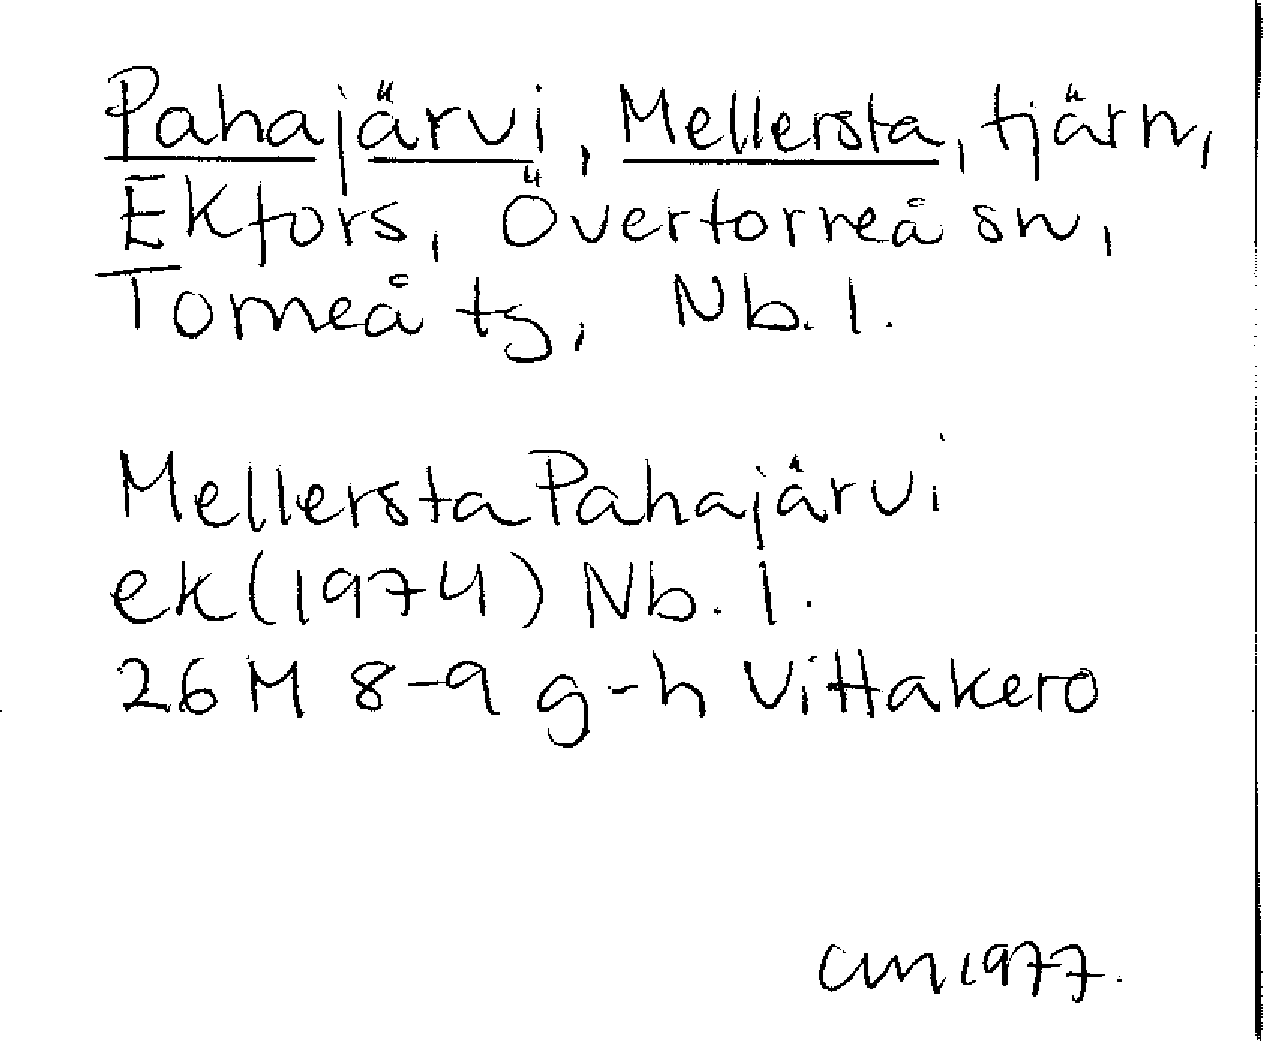 Pahajärvi, Mellersta, tjärn,
Ekfors, Övertorneå sn,
Torneå tg, Nb. l.
Mellersta Pahajärvi
ek (1974) Nb. l.
26 M 8-9 g-h Vittakero
CM 1977.